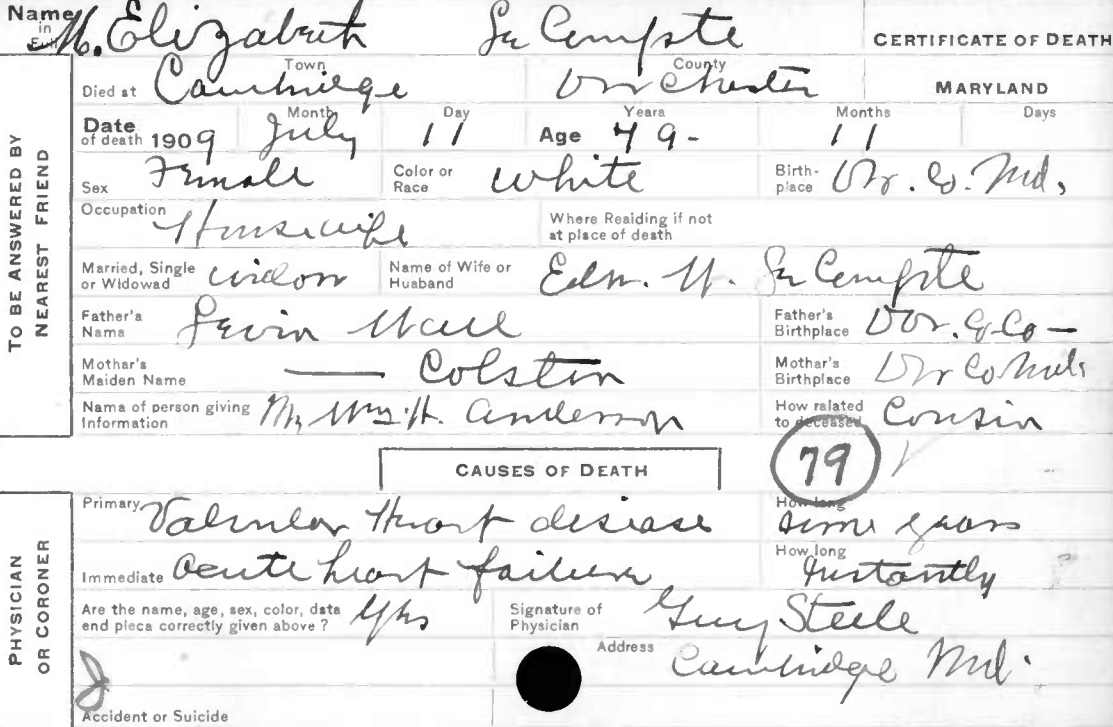 Name in Full M. Elizabeth Le Compte CERTIFICATE OF DEATH
Died at Town Cambridge County Dorchester MARYLAND
Date of death 1909 Month July Day 11 Age Years 79- Months 11 Days
Sex Female Color or Race White Birth-place Dor. Co. Md.
Occupation Housewife Where Residing if not at place of death
Married, Single or Widowed widow Name of Wife or Husband Edw. W. Le Compte
Father's Name Levin Wall Father's Birthplace Dor. Co —
Mother's Maiden Name — Colston Mother's Birthplace Dor Co Md.
Name of person giving Information Wm. H. Anderson How related to deceased Cousin
79
CAUSES OF DEATH
Primary Valvular Heart disease How long some years
Immediate acute heart failure How long Instantly
Are the name, age, sex, color, date and place correctly given above? Yes Signature of Physician Guy Steele
Address Cambridge Md.
Accident or Suicide
TO BE ANSWERED BY NEAREST FRIEND
PHYSICIAN OR CORONER